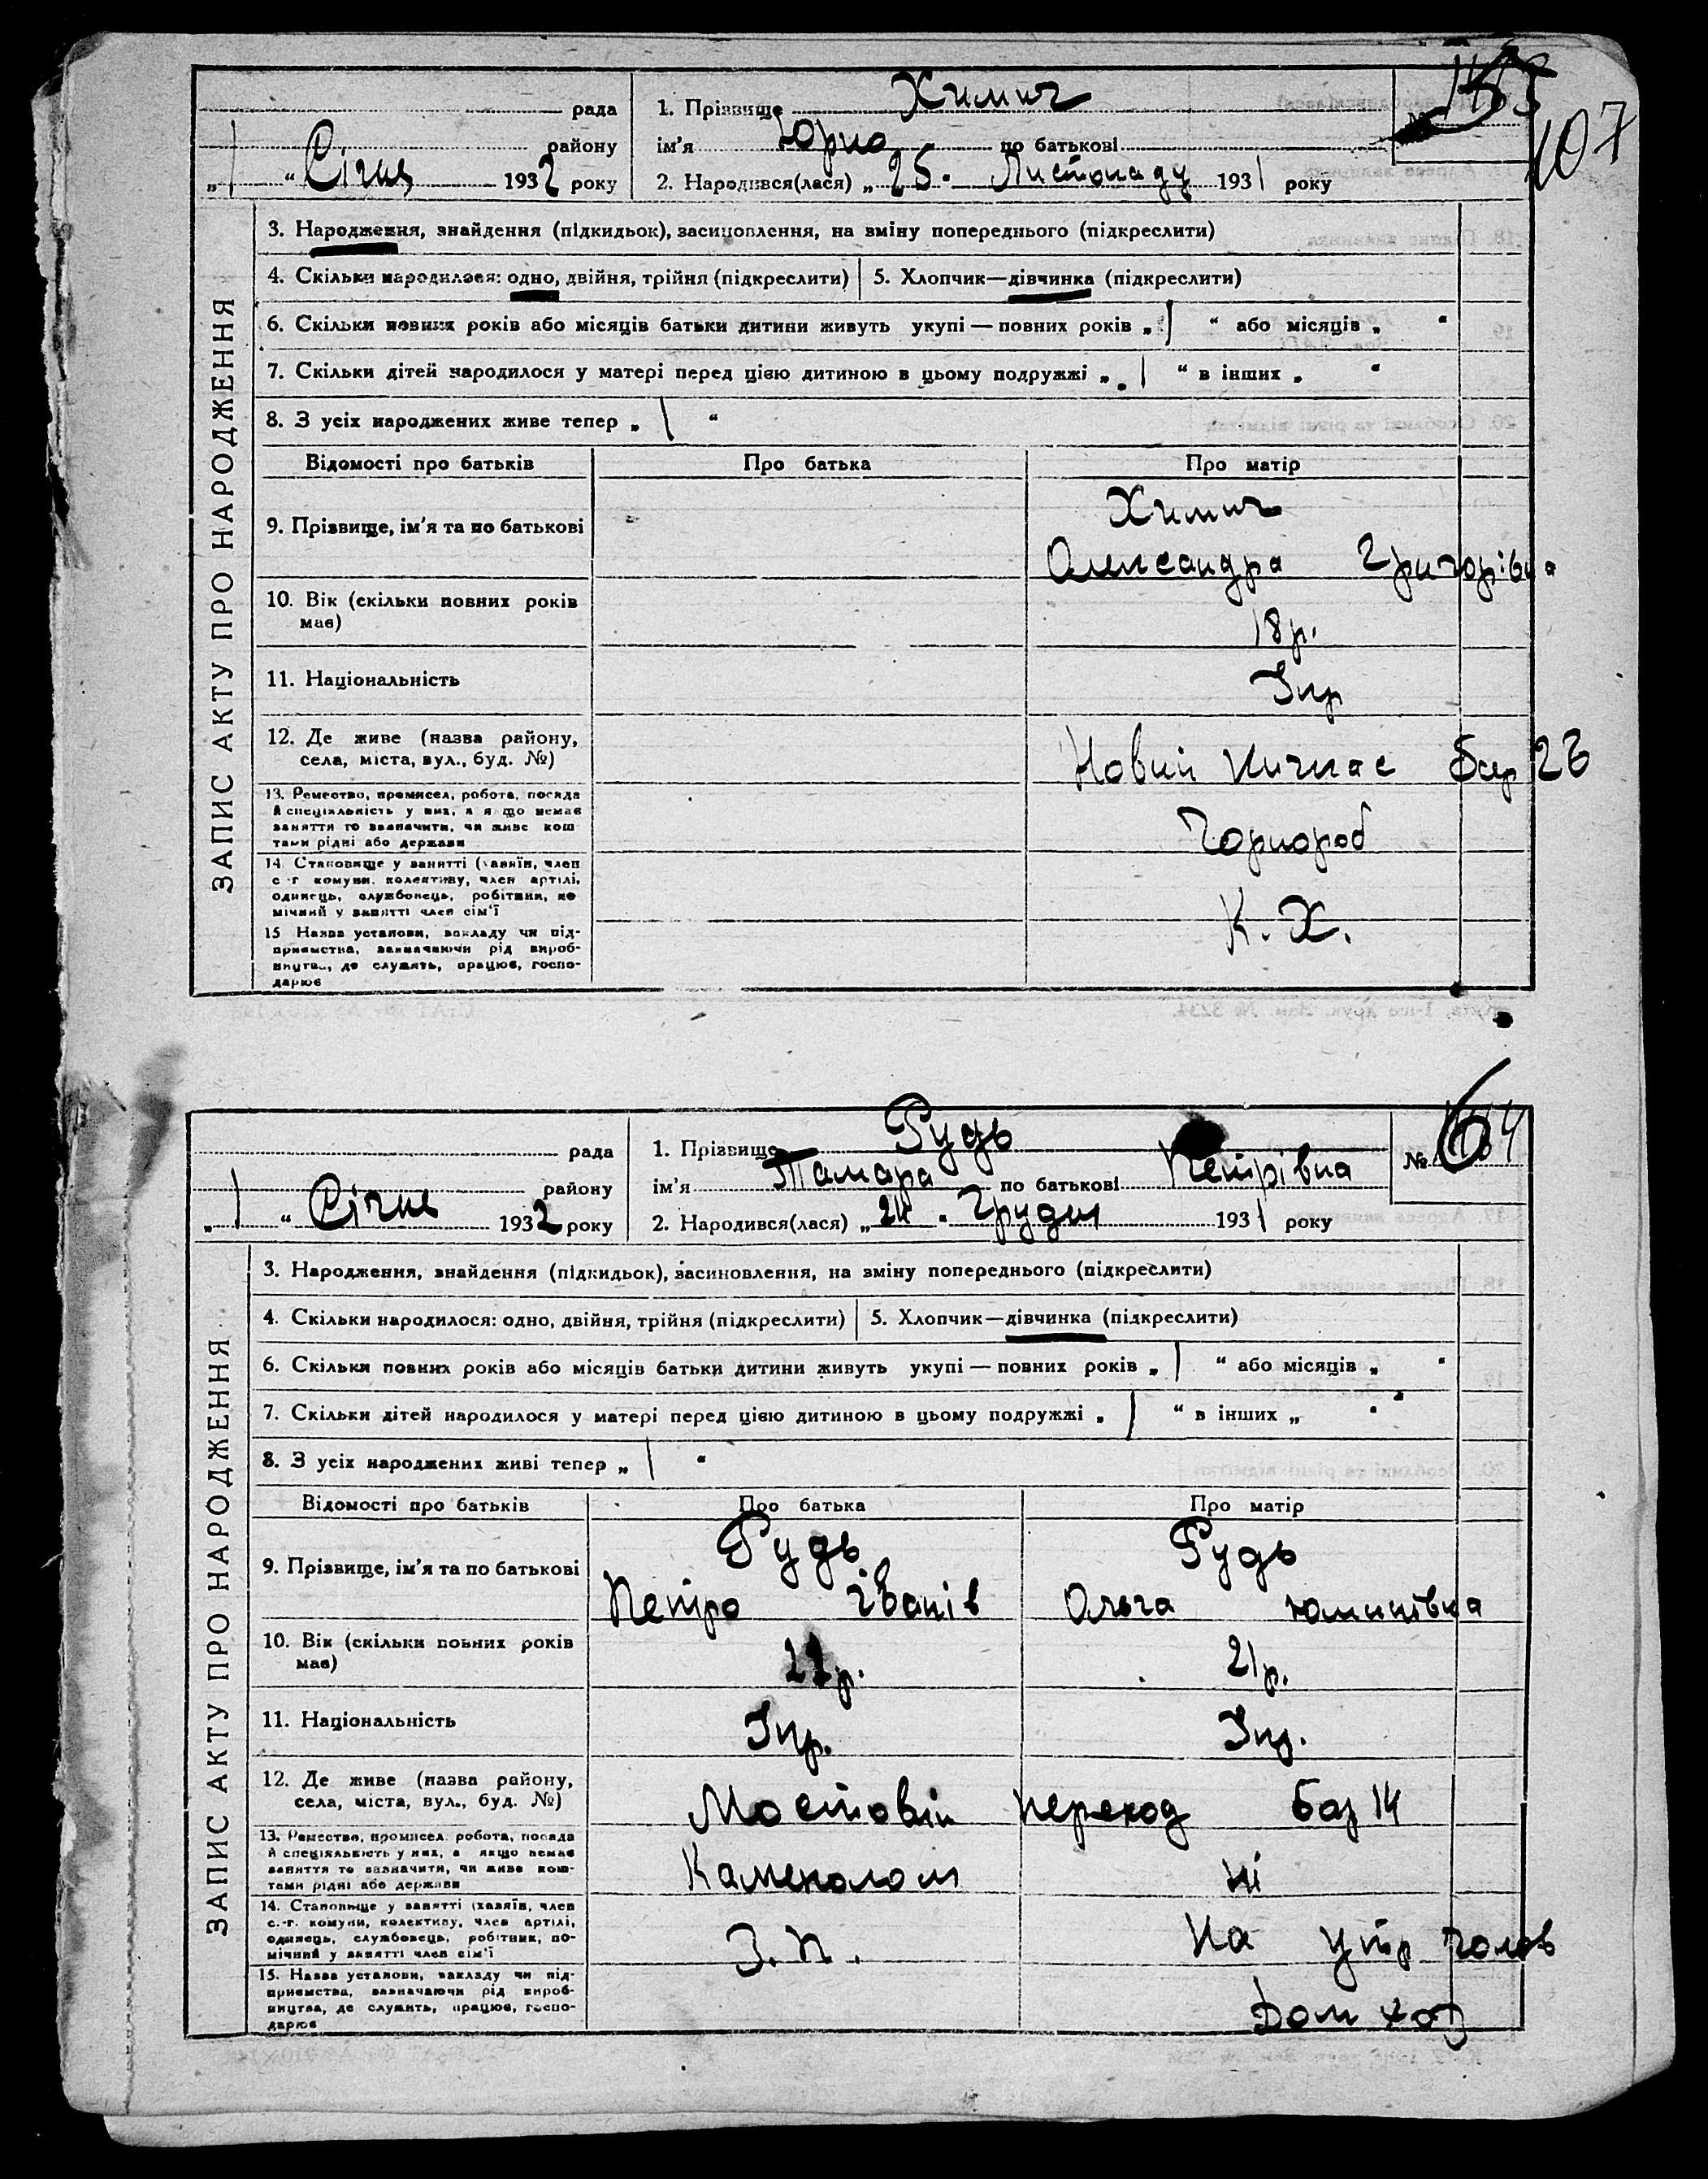 рада
району
„1“ Січня 1932 року
1. Прізвище Химич
ім'я по батькові
2. Народився(лася) „25. Листопаду 1931 року
107
ЗАПИС АКТУ ПРО НАРОДЖЕННЯ
3. Народження, знайдення (підкидьок), засиновлення, на зміну попереднього (підкреслити)
4. Скільки народилося: одно, двійня, трійня (підкреслити)
5. Хлопчик—дівчинка (підкреслити)
6. Скільки повних років або місяців батьки дитини живуть укупі — повних років „1 “ або місяців „ “
7. Скільки дітей народилося у матері перед цією дитиною в цьому подружжі „1 “ в інших „ “
8. З усіх народжених живе тепер „1 “
Відомості про батьків
Про батька
Про матір
9. Прізвище, ім'я та по батькові
Химич
Олександра Григорівна
10. Вік (скільки повних років
має)
18р.
11. Національність
Укр
12. Де живе (назва району,
села, міста, вул., буд. №)
Новий Кичкас бар 26
13. Ремество, промисел, робота, посада
й спеціяльність у них, а якщо немає
заняття то зазначити, чи живе кош
тами рідні або держави
Чорнороб
14. Становище у занятті (хазяїн, член
с.-г комуни, колективу, член артілі,
одинець, службовець, робітник, по
мічний у занятті член сім'ї
К. Х.
15 Назва установи, закладу чи під-
приємства, зазначаючи рід вироб-
ництва, де служить, працює, госпо-
дарює
рада
району
„1“ Січня 1932 року
1. Прізвище Рудь
ім'я Тамара по батькові Петрівна
2. Народився(лася) „24. Грудня 1931 року
№
ЗАПИС АКТУ ПРО НАРОДЖЕННЯ
3. Народження, знайдення (підкидьок), засиновлення, на зміну попереднього (підкреслити)
4. Скільки народилося: одно, двійня, трійня (підкреслити)
5. Хлопчик—дівчинка (підкреслити)
6. Скільки повних років або місяців батьки дитини живуть укупі — повних років „1 “ або місяців „ “
7. Скільки дітей народилося у матері перед цією дитиною в цьому подружжі „1 “ в інших „ “
8. З усіх народжених живі тепер „1 “
Відомості про батьків
Про батька
Про матір
9. Прізвище, ім'я та по батькові
Рудь
Петро Іванів
Рудь
Ольга
10. Вік (скільки повних років
має)
21р.
11. Національність
Укр.
Укр.
12. Де живе (назва району,
села, міста, вул., буд. №)
Мостовій переход бар 14
13. Ремество, промисел робота, посада
й спеціяльність у них, а якщо немає
заняття то зазначити, чи живе кош-
тами рідні або держави
Каменолом
ні
14. Становище у занятті (хазяїн, член
с.-г. комуни, колективу, член артілі,
одинець, службовець, робітник, по-
мічний у занятті член сім'ї
З. П.
На утр чолов
15. Назва установи, закладу чи під-
приємства, зазначаючи рід вироб-
ництва, де служить, працює, госпо-
дарює
Дом хоз